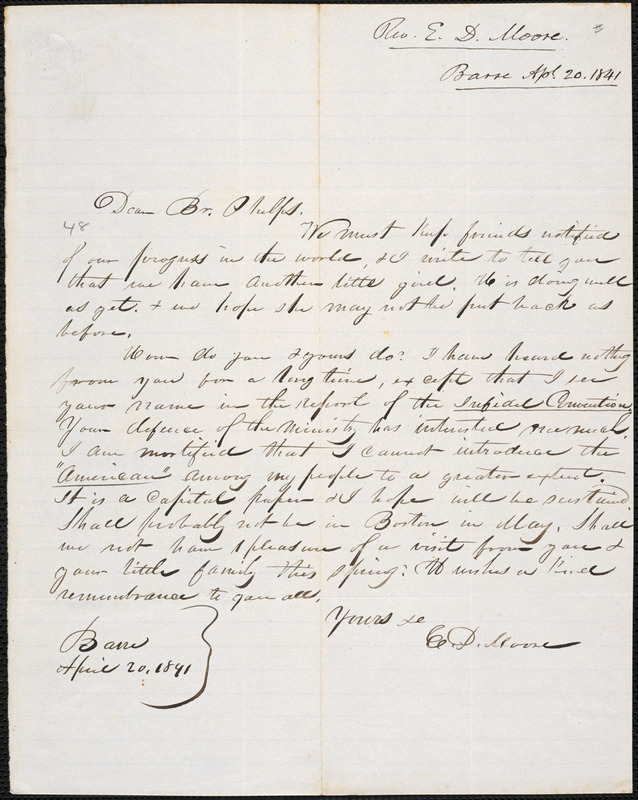 Rev. E. D. Moore.
Barre Apl. 20. 1841
Dear Br. Phelps.
48
We must keep friends notified
of our progress in the world, & I write to tell you
that we have another little girl. is doing well
as yet. & we hope she may not be put back as
before.
How do you & yours do? I have heard nothing
from you for a long time, except that I see
your name in the report of the Infidel Convention.
Your defence of the Ministry has interested me much.
I am mortified that I cannot introduce the
"American" among my people to a greater extent.
It is a capital paper & I hope will be sustained.
Shall probably not be in Boston in May. Shall
we not have pleasure of a visit from you &
your little family this spring? wishes a kind
remembrance to you all.
Yours &c
E. D. Moore
Barre
April 20, 1841